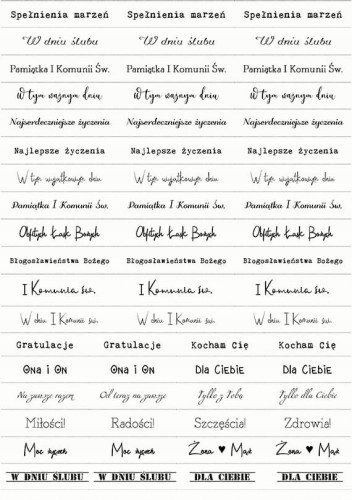 Spełnienia marzeń Spełnienia marzeń Spełnienia marzeń
W dniu ślubu W dniu ślubu W dniu ślubu
Pamiątka I Komunii Św. Pamiątka I Komunii Św. Pamiątka I Komunii Św.
W tym ważnym dniu W tym ważnym dniu W tym ważnym dniu
Najserdeczniejsze życzenia Najserdeczniejsze życzenia Najserdeczniejsze życzenia
Najlepsze życzenia Najlepsze życzenia Najlepsze życzenia
W tym wyjątkowym dniu W tym wyjątkowym dniu W tym wyjątkowym dniu
Pamiątka I Komunii Św. Pamiątka I Komunii Św. Pamiątka I Komunii Św.
Obfitych Łask Bożych Obfitych Łask Bożych Obfitych Łask Bożych
Błogosławieństwa Bożego Błogosławieństwa Bożego Błogosławieństwa Bożego
I Komunia św. I Komunia św. I Komunia św.
W dniu I Komunii św. W dniu I Komunii św. W dniu I Komunii św.
Gratulacje Gratulacje Kocham Cię Kocham Cię
Ona i On Ona i On Dla Ciebie Dla Ciebie
Na zawsze razem Od teraz na zawsze Tylko z Tobą Tylko dla Ciebie
Miłości! Radości! Szczęścia! Zdrowia!
Moc życzeń Moc życzeń Żona ♥ Mąż Żona ♥ Mąż
W DNIU ŚLUBU W DNIU ŚLUBU DLA CIEBIE DLA CIEBIE